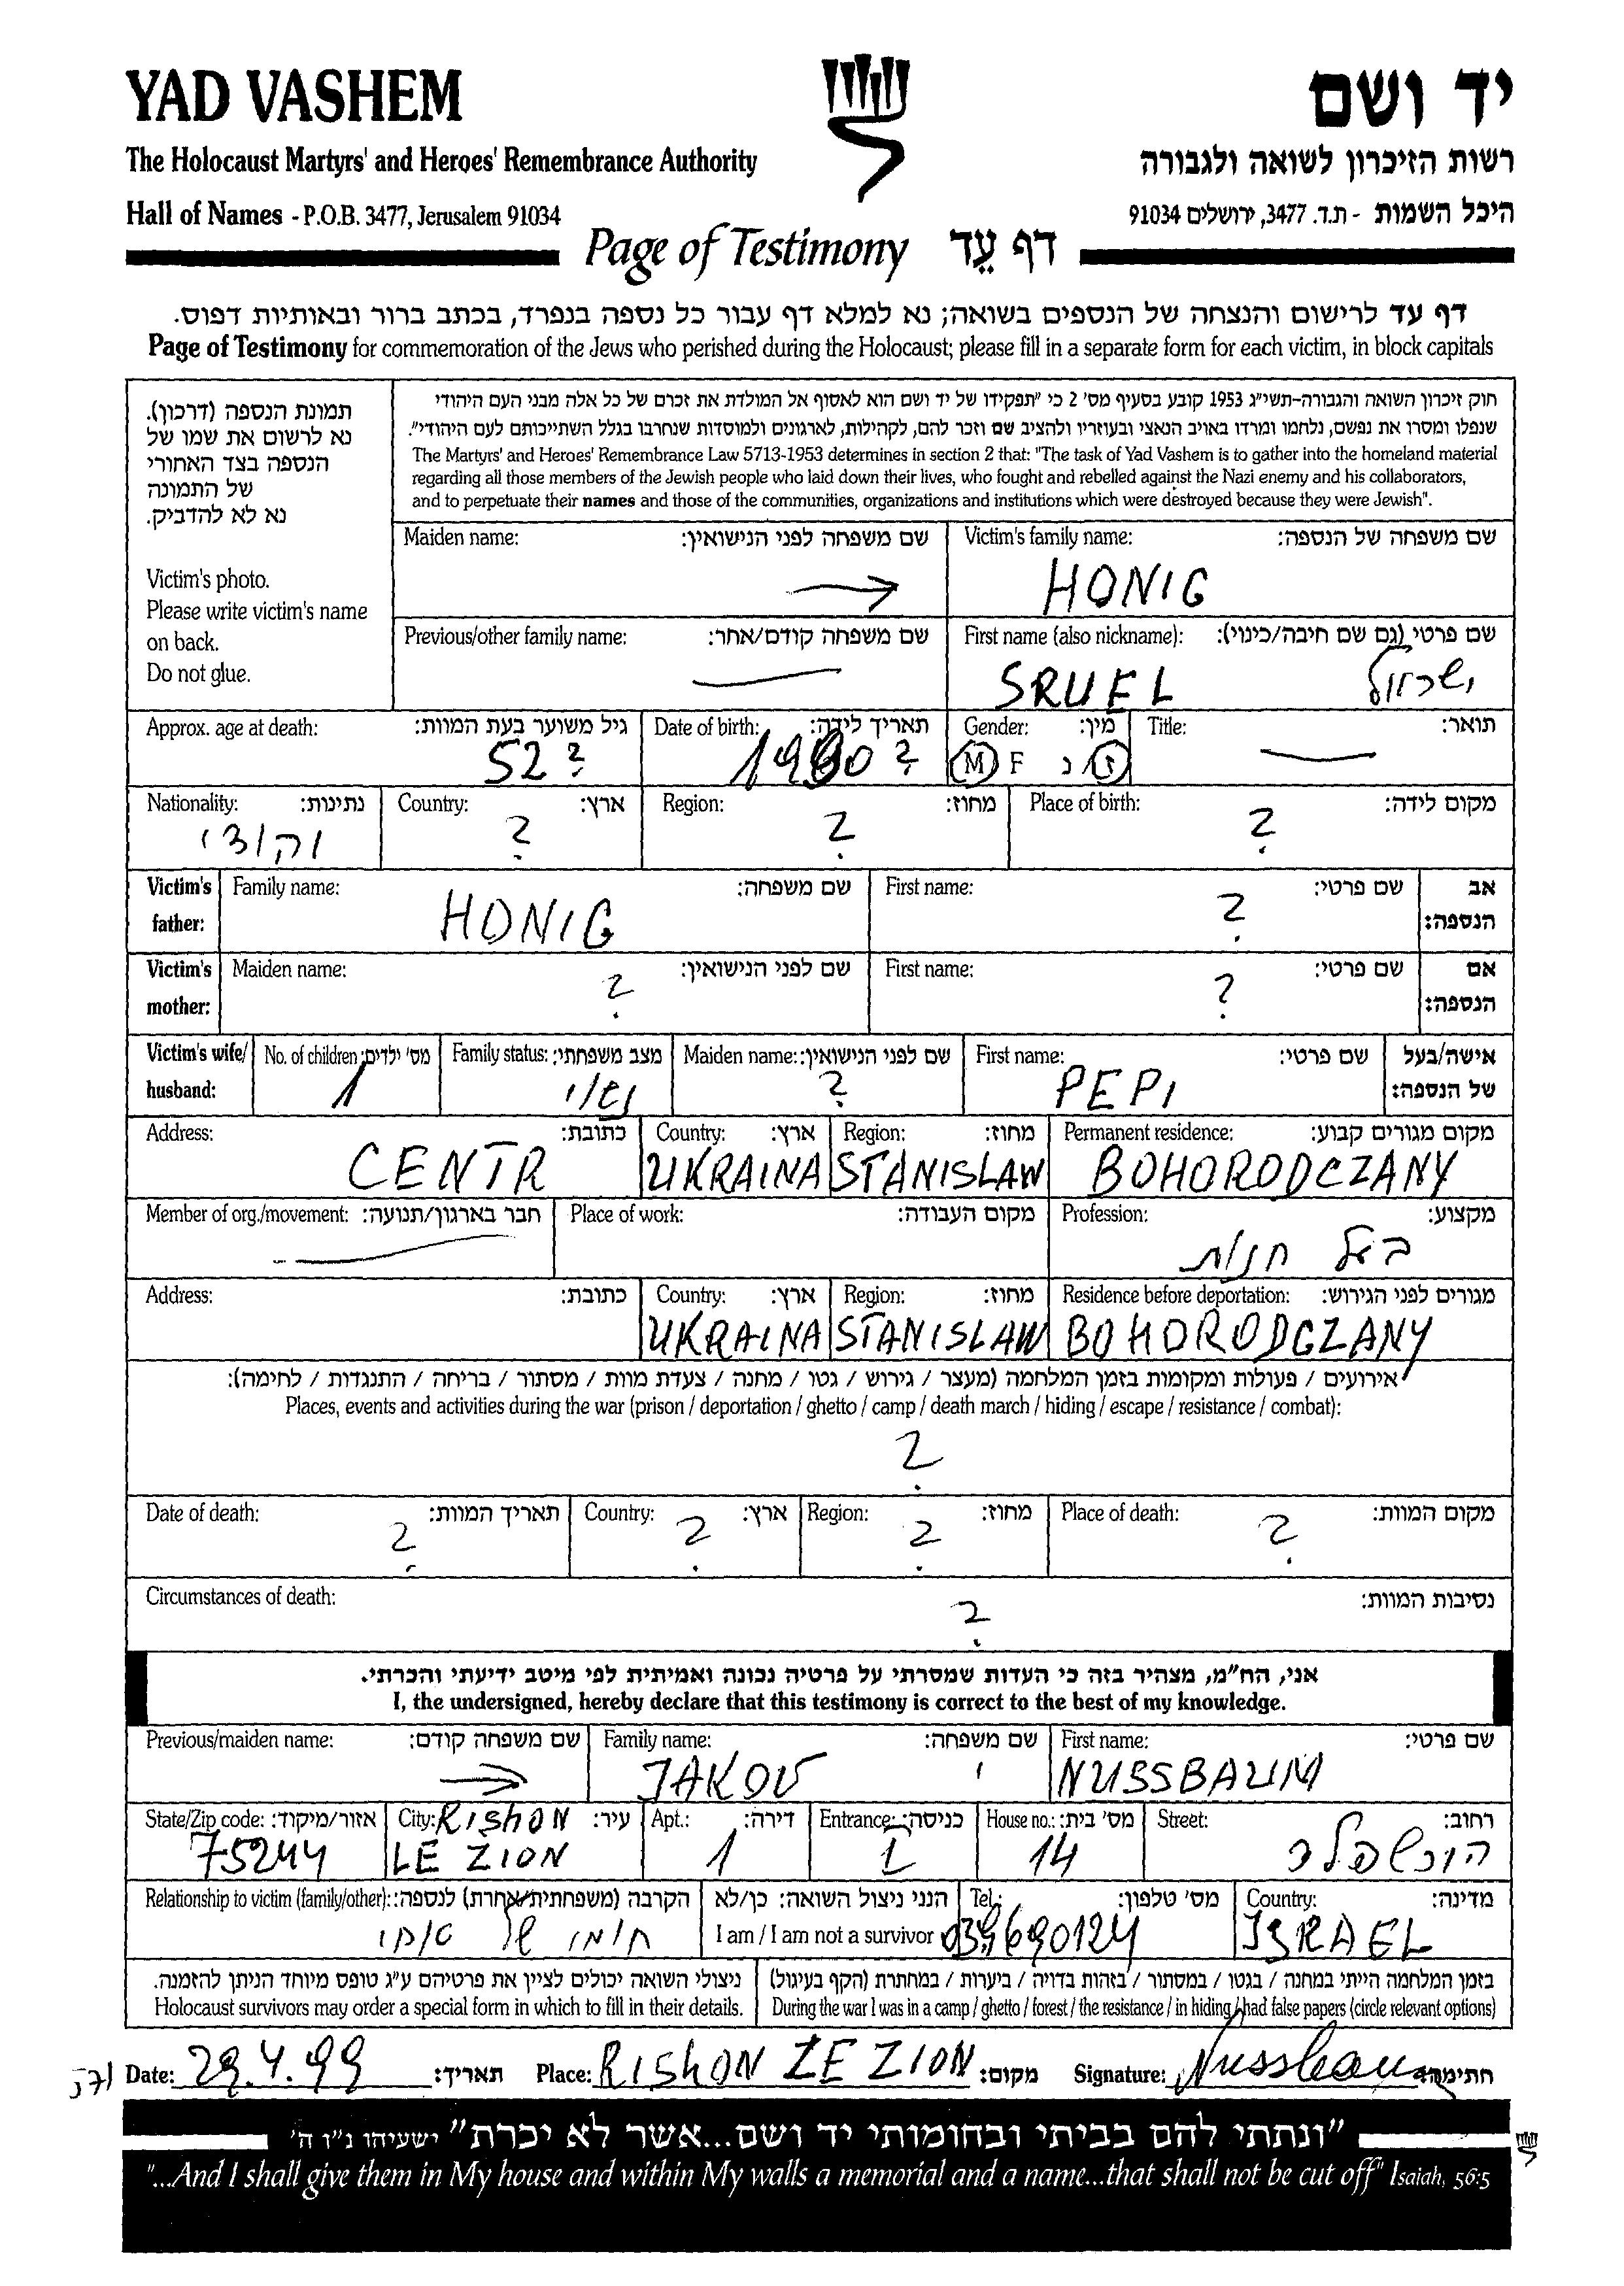 YAD VASHEM
יד ושם
The Holocaust Martyrs' and Heroes' Remembrance Authority
רשות הזיכרון לשואה ולגבורה
Hall of Names - P.O.B. 3477, Jerusalem 91034
היכל השמות - ת.ד. 3477, ירושלים 91034
Page of Testimony דף עֵד
דף עד לרישום והנצחה של הנספים בשואה; נא למלא דף עבור כל נספה בנפרד, בכתב ברור ובאותיות דפוס.
Page of Testimony for commemoration of the Jews who perished during the Holocaust; please fill in a separate form for each victim, in block capitals
תמונת הנספה (דרכון).
נא לרשום את שמו של
הנספה בצד האחורי
של התמונה
נא לא להדביק.
Victim's photo.
Please write victim's name
on back.
Do not glue.
חוק זיכרון השואה והגבורה-תשי"ג 1953 קובע בסעיף מס' 2 כי "תפקידו של יד ושם הוא לאסוף אל המולדת את זכרם של כל אלה מבני העם היהודי
שנפלו ומסרו את נפשם, נלחמו ומרדו באויב הנאצי ובעוזריו ולהציב שם וזכר להם, לקהילות, לארגונים ולמוסדות שנחרבו בגלל השתייכותם לעם היהודי".
The Martyrs' and Heroes' Remembrance Law 5713-1953 determines in section 2 that: "The task of Yad Vashem is to gather into the homeland material
regarding all those members of the Jewish people who laid down their lives, who fought and rebelled against the Nazi enemy and his collaborators,
and to perpetuate their names and those of the communities, organizations and institutions which were destroyed because they were Jewish".
Maiden name: שם משפחה לפני הנישואין:
Victim's family name: שם משפחה של הנספה:
HONIG
Previous/other family name: שם משפחה קודם/אחר:
First name (also nickname): שם פרטי (גם שם חיבה/כינוי):
SRUEL ישרול
Approx. age at death: גיל משוער בעת המוות:
52 ?
Date of birth: תאריך לידה:
1890 ?
Gender: מין:
M F ז/נ
Title: תואר:
Nationality: נתינות:
יהודי
Country: ארץ:
?
Region: מחוז:
?
Place of birth: מקום לידה:
?
Victim's father:
Family name: שם משפחה:
HONIG
First name: שם פרטי:
?
אב הנספה:
Victim's mother:
Maiden name: שם לפני הנישואין:
?
First name: שם פרטי:
?
אם הנספה:
Victim's wife/ husband:
No. of children: מס' ילדים:
1
Family status: מצב משפחתי:
נשוי
Maiden name: שם לפני הנישואין:
?
First name: שם פרטי:
PEPI
אישה/בעל של הנספה:
Address: כתובת:
CENTR
Country: ארץ:
UKRAINA
Region: מחוז:
STANISLAW
Permanent residence: מקום מגורים קבוע:
BOHORODCZANY
Member of org./movement: חבר בארגון/תנועה:
Place of work: מקום העבודה:
Profession: מקצוע:
בעל חנות
Address: כתובת:
Country: ארץ:
UKRAINA
Region: מחוז:
STANISLAW
Residence before deportation: מגורים לפני הגירוש:
BOHORODCZANY
אירועים / פעולות ומקומות בזמן המלחמה (מעצר / גירוש / גטו / מחנה / צעדת מוות / מסתור / בריחה / התנגדות / לחימה):
Places, events and activities during the war (prison / deportation / ghetto / camp / death march / hiding / escape / resistance / combat):
?
Date of death: תאריך המוות:
?
Country: ארץ:
?
Region: מחוז:
?
Place of death: מקום המוות:
?
Circumstances of death: נסיבות המוות:
?
אני, הח"מ, מצהיר בזה כי העדות שמסרתי על פרטיה נכונה ואמיתית לפי מיטב ידיעתי והכרתי.
I, the undersigned, hereby declare that this testimony is correct to the best of my knowledge.
Previous/maiden name: שם משפחה קודם:
Family name: שם משפחה:
JAKOV
First name: שם פרטי:
NUSSBAUM
State/Zip code: אזור/מיקוד:
75244
City: עיר:
RISHON
LE ZION
Apt.: דירה:
1
Entrance: כניסה:
1
House no.: מס' בית:
14
Street: רחוב:
Relationship to victim (family/other): הקרבה (משפחתית/אחרת) לנספה:
I am / I am not a survivor הנני ניצול השואה: כן/לא
Tel.: מס' טלפון:
039690124
Country: מדינה:
ISRAEL
ניצולי השואה יכולים לציין את פרטיהם ע"ג טופס מיוחד הניתן להזמנה.
Holocaust survivors may order a special form in which to fill in their details.
בזמן המלחמה הייתי במחנה / בגטו / במסתור / בזהות בדויה / ביערות / במחתרת (הקף בעיגול)
During the war I was in a camp / ghetto / forest / the resistance / in hiding / had false papers (circle relevant options)
Date: 29.4.99 תאריך:
Place: RISHON LE ZION מקום:
Signature: Nussbaum חתימה:
"ונתתי להם בביתי ובחומותי יד ושם...אשר לא יכרת" ישעיהו נ"ו ה'
"...And I shall give them in My house and within My walls a memorial and a name...that shall not be cut off" Isaiah, 56:5